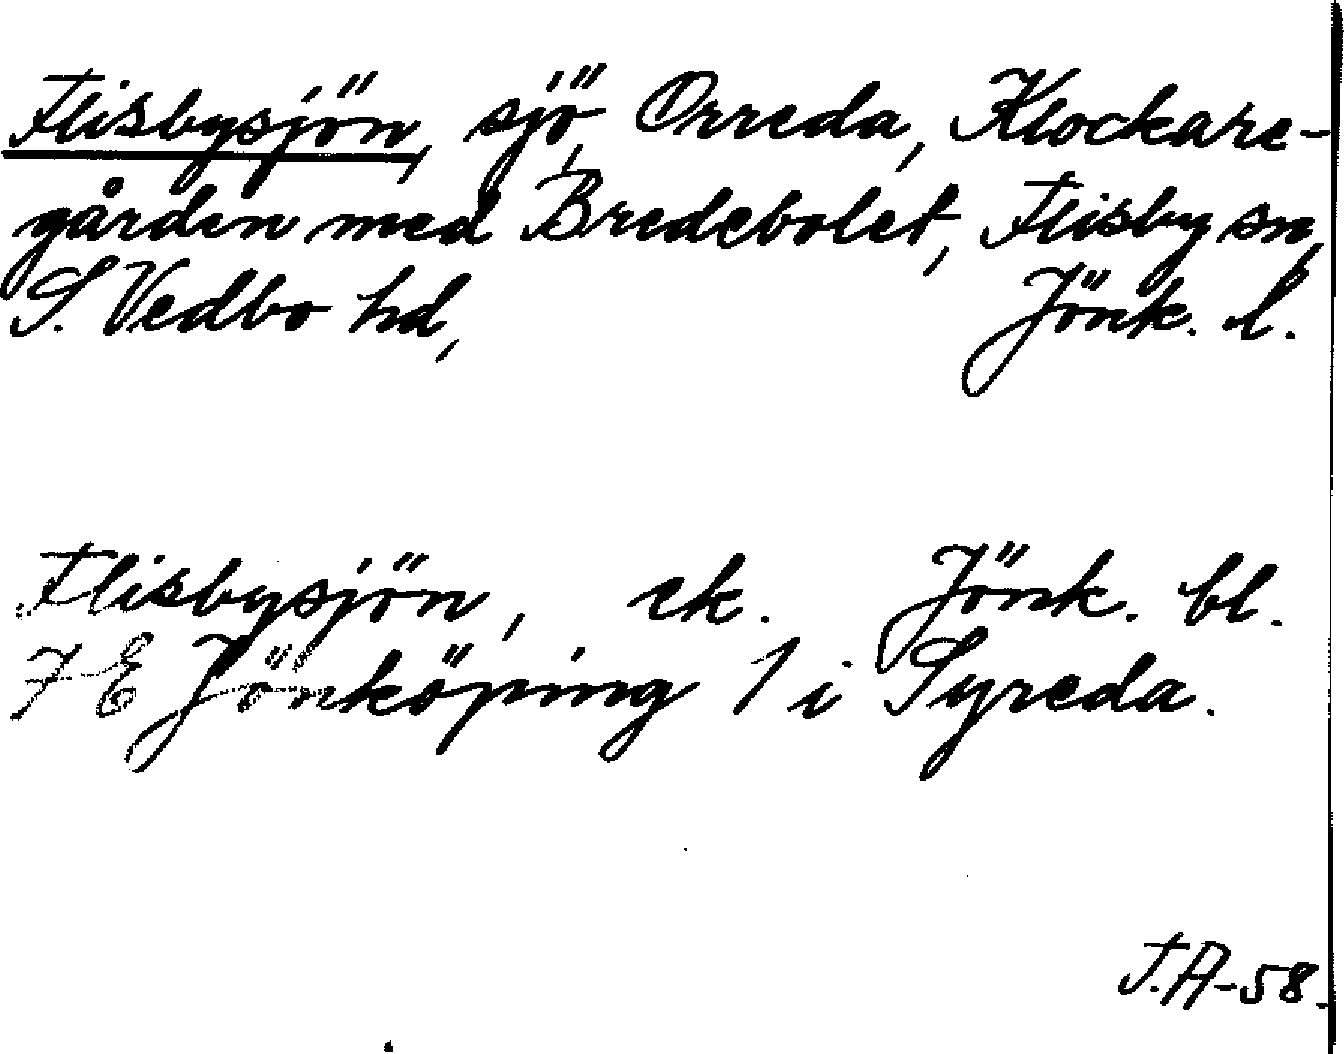 Flisbysjön, sjö, Orreda, Klockare-
gården med Bredebolet, Flisby sn,
S. Vedbo hd, Jönk. l.
Flisbysjön, ek. Jönk. bl.
7 E Jönköping 1 i Syreda.
T.A-58.